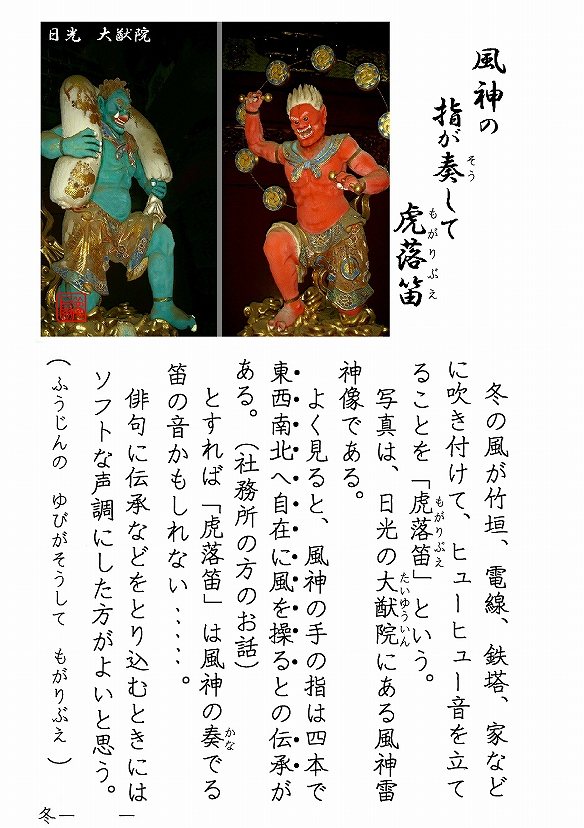 風神の
指が奏して
そう
虎落笛
もがりぶえ
日光　大猷院
冬の風が竹垣、電線、鉄塔、家など
に吹き付けて、ヒューヒュー音を立て
ることを「虎落笛」という。
もがりぶえ
写真は、日光の大猷院にある風神雷
たいゆういん
神像である。
よく見ると、風神の手の指は四本で
東西南北へ自在に風を操るとの伝承が
ある。（社務所の方のお話）
とすれば「虎落笛」は風神の奏でる
かな
笛の音かもしれない・・・・・。
俳句に伝承などをとり込むときには
ソフトな声調にした方がよいと思う。
（ふうじんの　ゆびがそうして　もがりぶえ）
冬－　　－